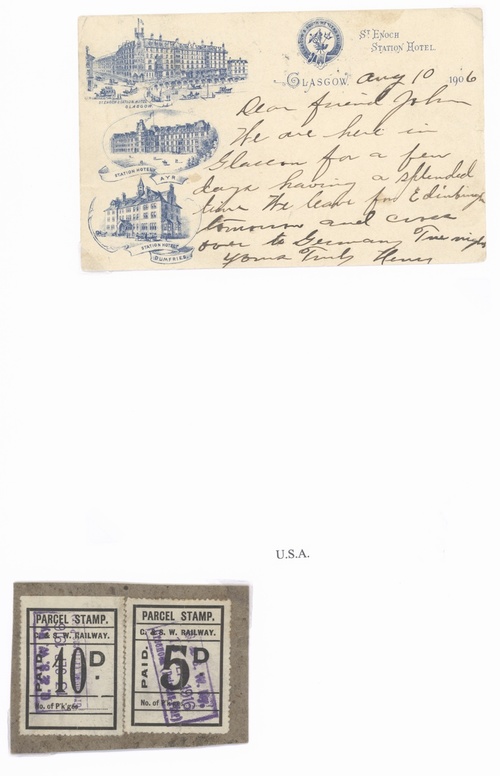 St ENOCH
STATION HOTEL.
GLASGOW. Aug 10 1906
Dear friend John
We are here in
Glascow for a few
days having a splended
time We leave for Edinburgh
tomorrow and cross
over to Germany Tue night
Yours Truly Henry
ST ENOCH STATION HOTEL
GLASGOW
STATION HOTEL
AYR
STATION HOTEL
DUMFRIES
U.S.A.
PARCEL STAMP.
G. & S. W. RAILWAY.
PAID.
10D.
No. of P'k'ges
PARCEL STAMP.
G. & S. W. RAILWAY.
PAID.
5D
No. of P'k'ges
1916